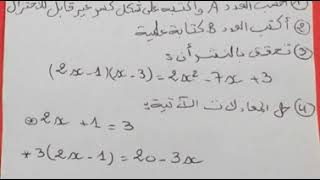 ① احسب العدد A واكتبه على شكل كسر غير قابل للاختزال
② أكتب العدد B كتابة علمية
③ تحقق بالنشر أن:
(2x-1)(x-3) = 2x² - 7x + 3
④ حل المعادلات الآتية:
⊛ 2x + 1 = 3
* 3(2x-1) = 20 - 3x